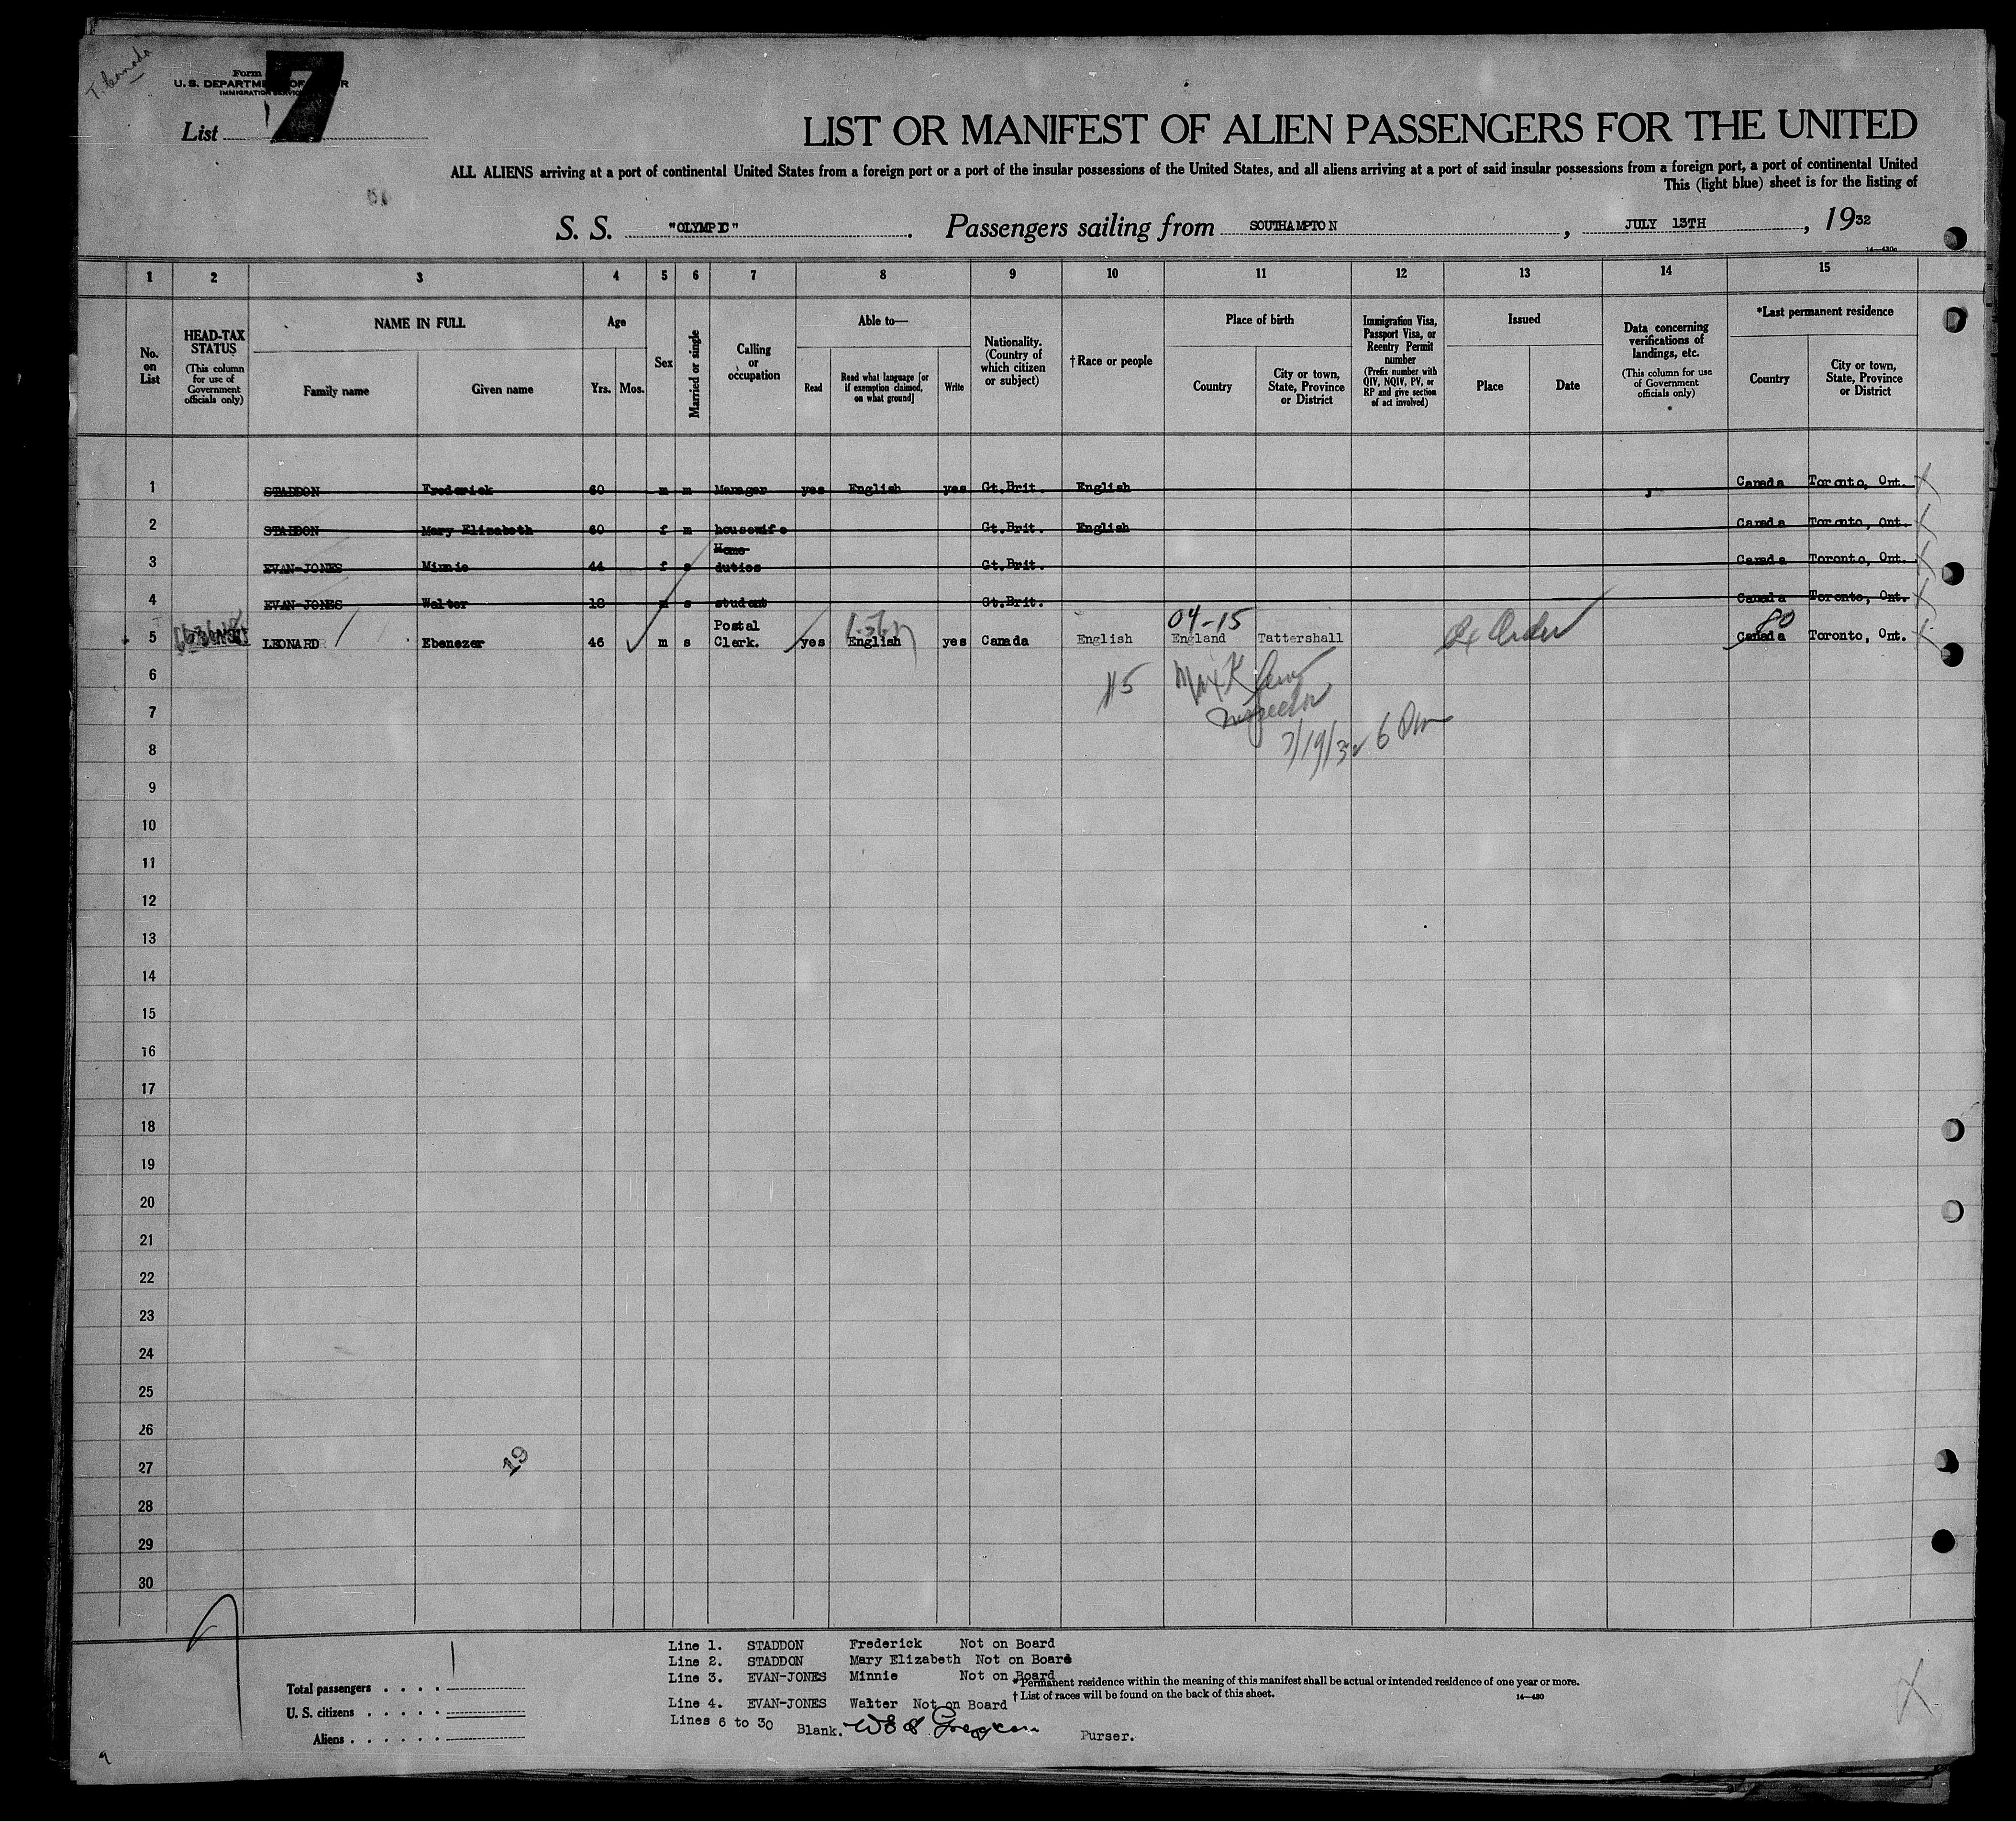 T. Canada
Form
U. S. DEPARTMENT OF LABOR
IMMIGRATION SERVICE
7
List
LIST OR MANIFEST OF ALIEN PASSENGERS FOR THE UNITED
ALL ALIENS arriving at a port of continental United States from a foreign port or a port of the insular possessions of the United States, and all aliens arriving at a port of said insular possessions from a foreign port, a port of continental United
This (light blue) sheet is for the listing of
S. S. "OLYMPIC". Passengers sailing from SOUTHAMPTON, JULY 13TH, 1932
14—430a
1 2 3 4 5 6 7 8 9 10 11 12 13 14 15
No. on List
HEAD-TAX STATUS (This column for use of Government officials only)
NAME IN FULL
Family name Given name
Age
Yrs. Mos.
Sex
Married or single
Calling or occupation
Able to—
Read Read what language [or if exemption claimed, on what ground] Write
Nationality. (Country of which citizen or subject)
†Race or people
Place of birth
Country City or town, State, Province or District
Immigration Visa, Passport Visa, or Reentry Permit number (Prefix number with QIV, NQIV, PV, or RP and give section of act involved)
Issued
Place Date
Data concerning verifications of landings, etc. (This column for use of Government officials only) *
*Last permanent residence
Country City or town, State, Province or District
1 STADDON Frederick 60 m m Manager yes English yes Gt.Brit. English Canada Toronto, Ont.
2 STADDON Mary Elizabeth 60 f m housewife Gt.Brit. English Canada Toronto, Ont.
3 EVAN-JONES Minnie 44 f s Home duties Gt.Brit. Canada Toronto, Ont.
4 EVAN-JONES Walter 18 m s student Gt.Brit. Canada Toronto, Ont.
04-15 80
5 LEONARD Ebenezer 46 m s Postal Clerk. yes English yes Canada English England Tattershall Canada Toronto, Ont.
6
Inspector
7
7/19/32 6 Pm
8
9
10
11
12
13
14
15
16
17
18
19
20
21
22
23
24
25
26
27
19
28
29
30
Line 1. STADDON Frederick Not on Board
Line 2. STADDON Mary Elizabeth Not on Board
Line 3. EVAN-JONES Minnie Not on Board
Line 4. EVAN-JONES Walter Not on Board
Lines 6 to 30 Blank. Purser.
Total passengers 1
U. S. citizens
Aliens
* Permanent residence within the meaning of this manifest shall be actual or intended residence of one year or more.
† List of races will be found on the back of this sheet.
14—430